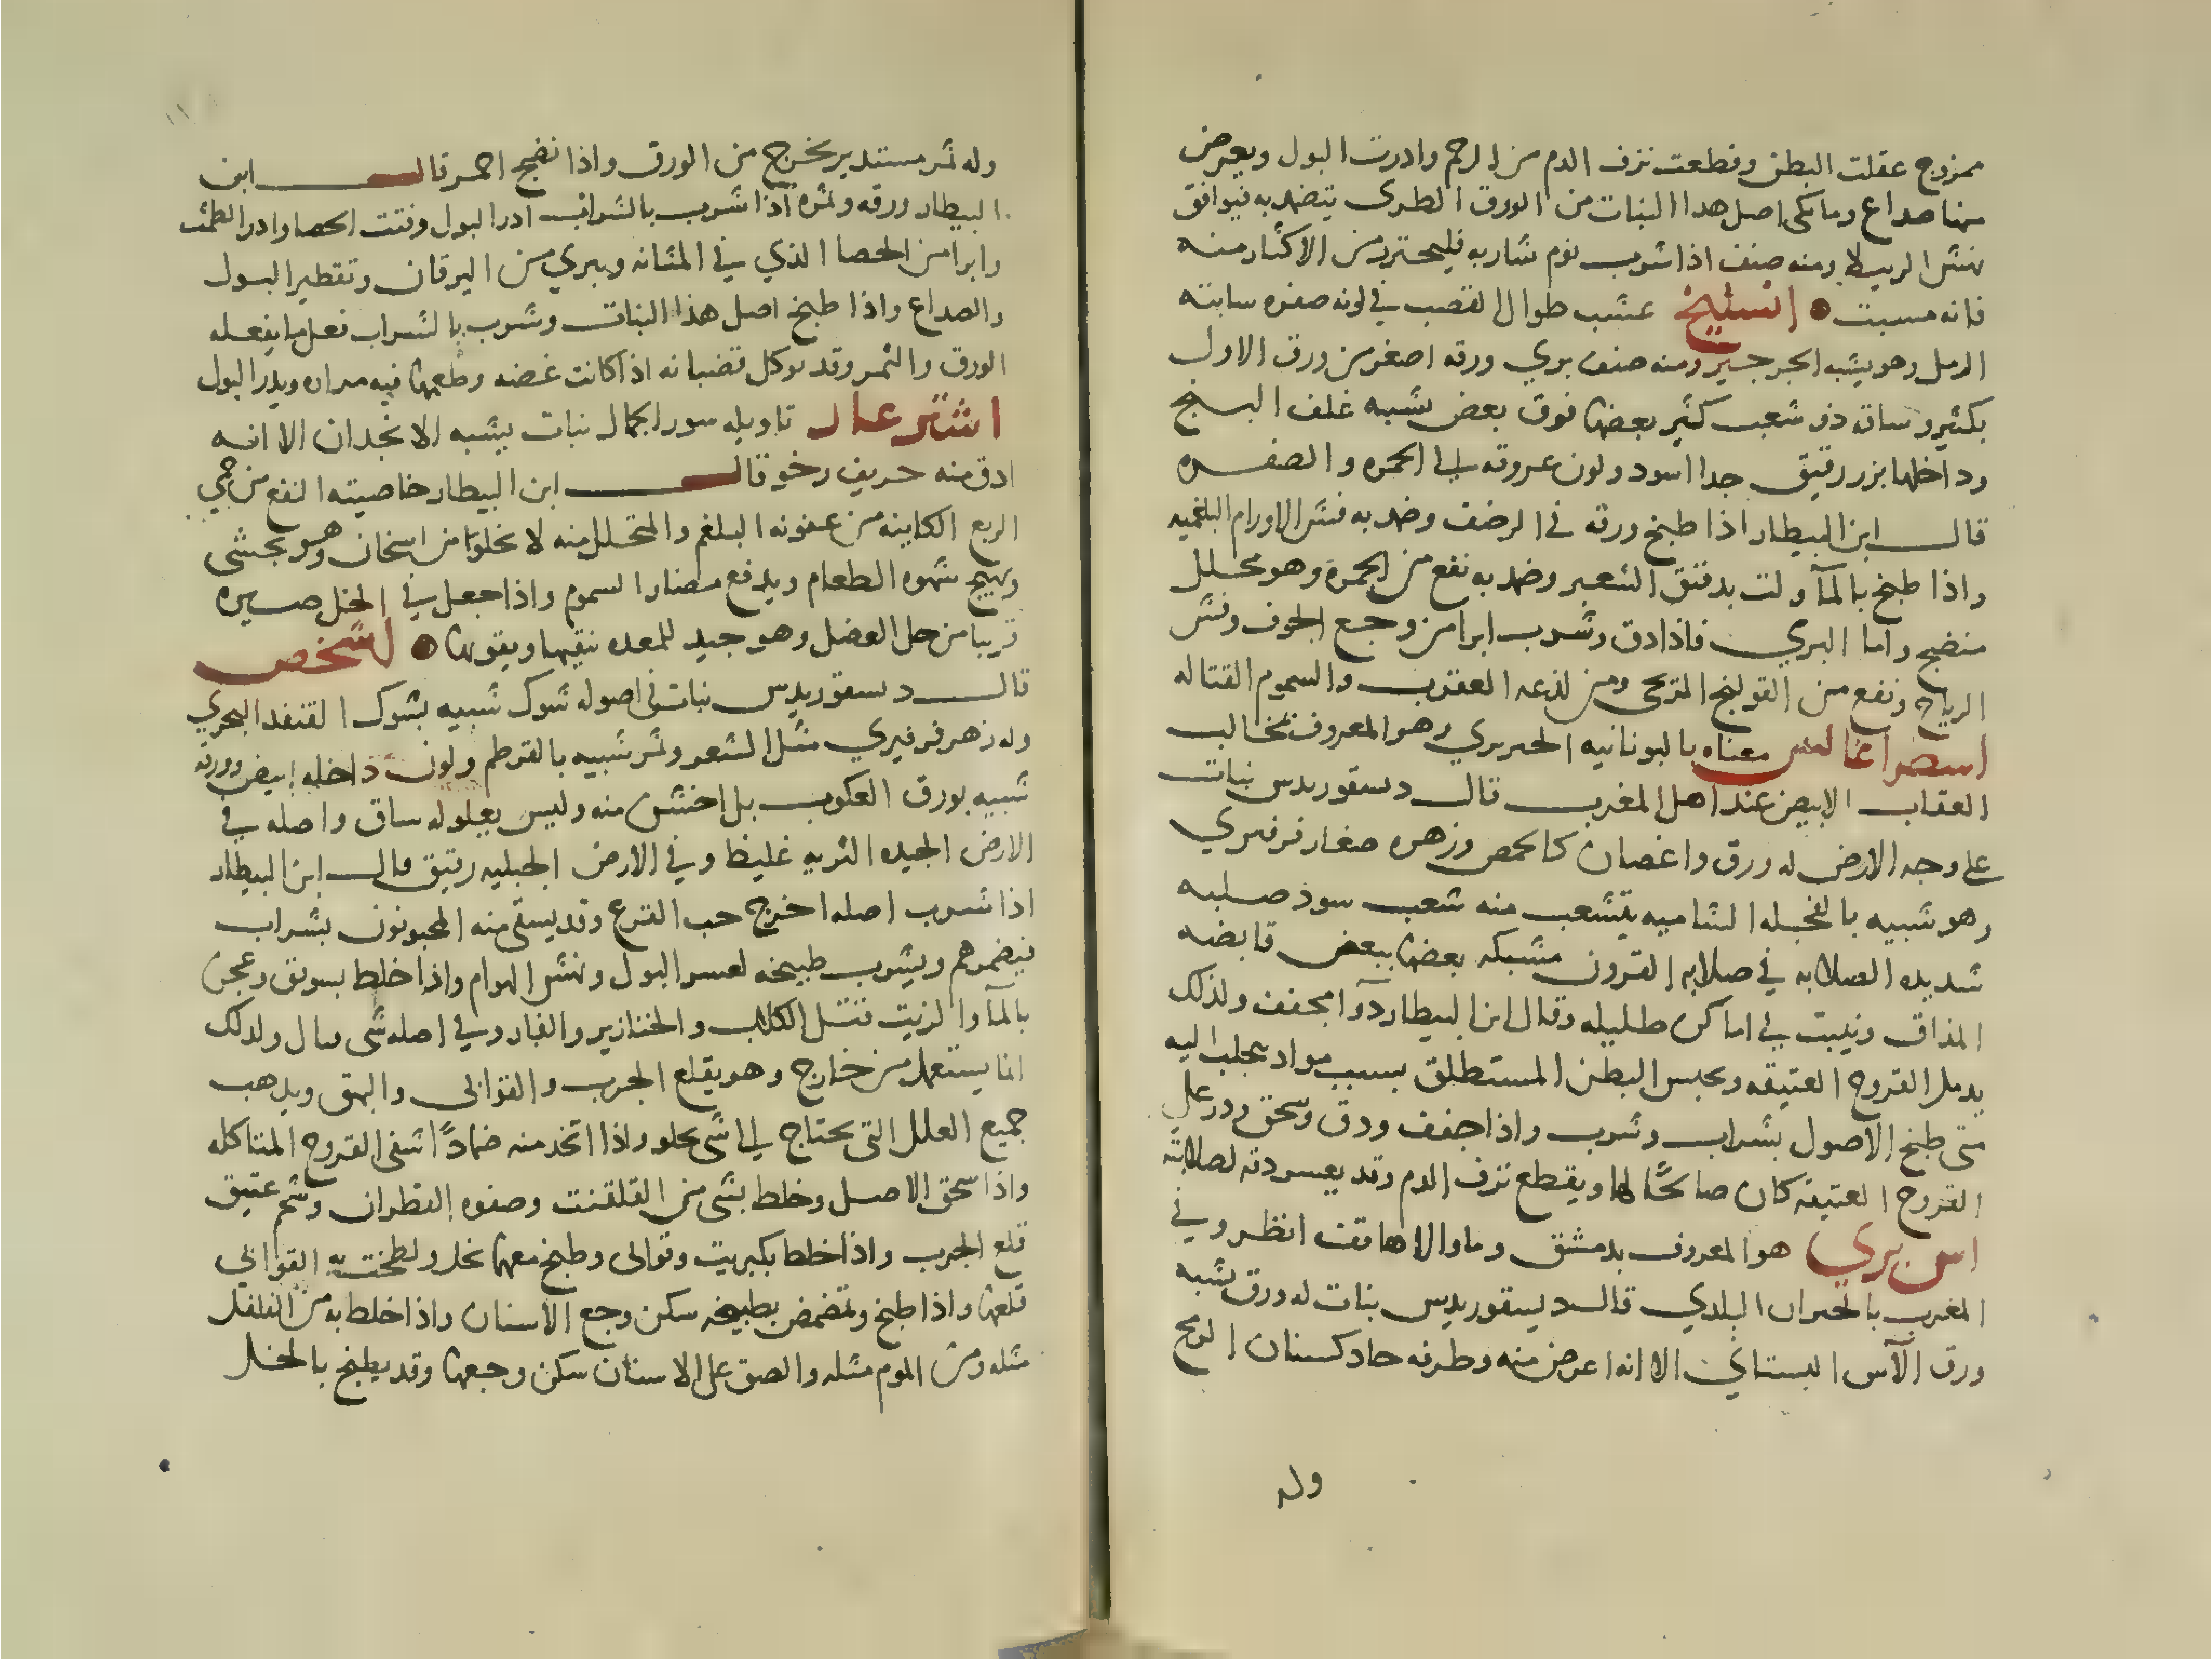 ممزوج عقلت البطن وقطعت نزف الدم من الرحم وادرت البول ويعرض
منها صداع وما يحكى اصل هدا النبات من الورق الطرى يتضمد به فيوافق
نهش الرتيلا ومنه صنف اذا شرب نوم شاربه فليحترز من الاكثار منه
فانه مسبت اشليخ عشب طوال القصب في لونه صفره سابته
الرمل وهو يشبه الجرجير ومنه صنف بري ورقه اصغر من ورق الاول
بكثير وساقه ذو شعب كثير بعضها فوق بعض شبيه غلف البنج
وداخلها بزر رقيق جدا اسود ولون عروقه الى الحمره والصفره
قال ابن البيطار اذا طبخ ورقه في الرضف وضمد به فش الاورام البلغميه
واذا طبخ بالمآ ولت بدقيق الشعير وضمد به نفع من الجمرة وهو محلل
منضج واما البري فاذا دق وشرب ابرا من وجع الجوف وفش
الرياح ونفع من القولنج الريحى ومن لدغه العقرب والسموم القتاله
اسطراغالس معناه باليونانيه الحريري وهو المعروف بمخالب
العقاب الابيض عند اهل المغرب قال دسقوريدس نبات
على وجه الارض له ورق واغصان كالحمص وزهره صغار فرفيري
وهو شبيه بالفجله الشاميه يتشعب منه شعب سود صلبه
شديده الصلابه في صلابه القرون مشبكه بعضها ببعض قابضه
المذاق وينبت في اماكن ظليله وقال ابن البيطار دوآ مجفف ولذلك
يدمل القروح العتيقه ويحبس البطن المستطلق بسبب مواد تحلب اليه
متى طبخ الاصول بشراب وشرب واذا جفف ودق وسحق وذر على
القروح العتيقه كان صالحًا لها ويقطع نزف الدم وقد يعسر دقه لصلابته
اس بري هو المعروف بدمشق وما والاها قف انظر وفي
المغرب بالخيزران البلدي قال ديسقوريدس نبات له ورق يشبه
ورق الآس البستاني الا انه اعرض منه وطرفه حاد كسنان الرمح
وله
١١
وله ثمر مستدير يخرج من الورق واذا نضج احمر قال ابن
البيطار ورقه وثمره اذا شرب بالشراب ادر البول وفتت الحصا وادر الطمث
وابرا من الحصا الذي في المثانه ويبري من اليرقان وتقطير البول
والصداع واذا طبخ اصل هذا النبات وشرب بالشراب فعل ما يفعله
الورق والثمر وقد توكل قضبانه اذا كانت غضه وطعمها فيه مراره ويدر البول
اشترغار تاويله شوك الجمال نبات يشبه الانجدان الا انه
ادق منه حريف رخو قال ابن البيطار خاصيته النفع من حمى
الربع الكاينه من عفونه البلغم والمتحلل منه لا يخلوا من اسخان وهو يجشى
ويهيج شهوه الطعام ويدفع مضار السموم واذا جعل في الخل صيره
قريبا من خل العنصل وهو جيد للمعده ينقيها ويقويها اشخص
قال دسقوريدس نبات في اصوله شوك شبيه بشوك القنفد البحري
وله زهر فرفيري مثل الشعر وثمر شبيه بالقرطم ولون داخله ابيض وورقه
شبيه بورق العكوب بل اخشن منه وليس يعلو له ساق واصله في
الارض الجيده التربه غليظ وفي الارض الجبليه رقيق قال ابن البيطار
اذا شرب اصله اخرج حب القرع وقد يسقى منه المحبونون بشراب
فيضمرهم ويشرب طبيخه لعسر البول ونهش الهوام واذا خلط بسويق وعجن
بالمآ والزيت قتل الكلاب والخنازير والفار وفي اصله شى قتال ولذلك
انما يستعمل من خارج وهو يقلع الجرب والقوابى والبهق ويذهب
جميع العلل التى يحتاج الى شى يجلو واذا اتخد منه ضمادًا شفى القروح المتاكله
واذا سحق الاصل وخلط بشى من القلقنت وصفوه القطران وشحم عتيق
قلع الجرب واذا خلط بكبريت وقوالى وطبخ معها بخل ولطخت به القوابي
قلعها واذا طبخ وتمضمض بطبيخه سكن وجع الاسنان واذا خلط به من الفلفل
مثله ومن الموم مثله والصق على الاسنان سكن وجعها وقد يطبخ بالخل